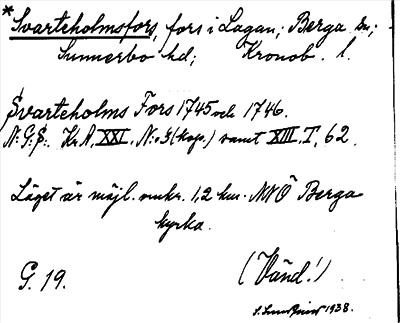 *Svarteholmsfors, fors i Lagan; Berga sn;
Sunnerbo hd; Kronob. l.
Svarteholms Fors 1745 och 1746.
N:G:S:. Kr. A. XXI. N:o 9 (kop.) samt XIII. I, 62.
Läget är möjl. omkr. 1,2 km. NNÖ Berga
kyrka.
G. 19. (Vänd!)
1938.